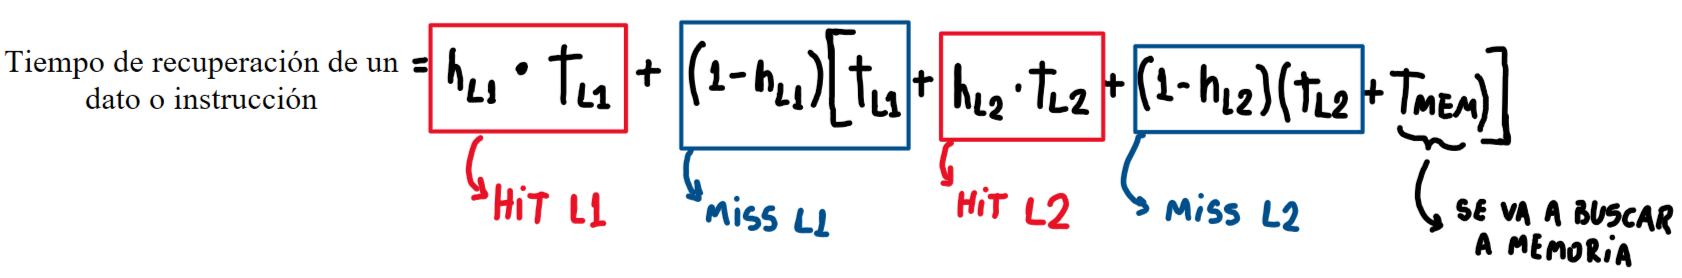 Tiempo de recuperación de un
dato o instrucción
= h_L1 · T_L1 + (1-h_L1)[t_L1 + h_L2 · T_L2 + (1-h_L2)(t_L2 + T_MEM)]
HiT L1
Miss L1
HiT L2
Miss L2
SE VA A BUSCAR
A MEMORiA